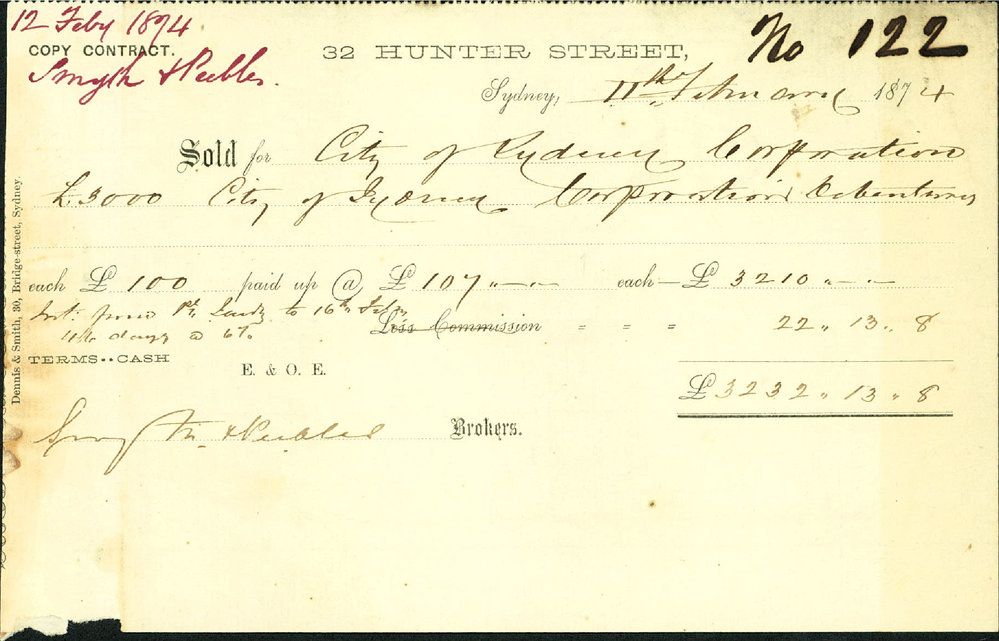 12 Feby 1874
COPY CONTRACT.
Smyth & Peebles.
No 122
32 HUNTER STREET,
Sydney, 11th February 1874
Sold for City of Sydney Corporation
£3000 City of Sydney Corporation Debentures
each £ 100 paid up @ £ 107 " - " - each - £ 3210 " - " -
Int: from 1st Jany to 16th Feby
46 days @ 6%
Less Commission = = = 22 " 13 " 8
TERMS..CASH
E. & O. E.
£ 3232 " 13 " 8
Smyth & Peebles Brokers.
Dennis & Smith, 30, Bridge-street, Sydney.